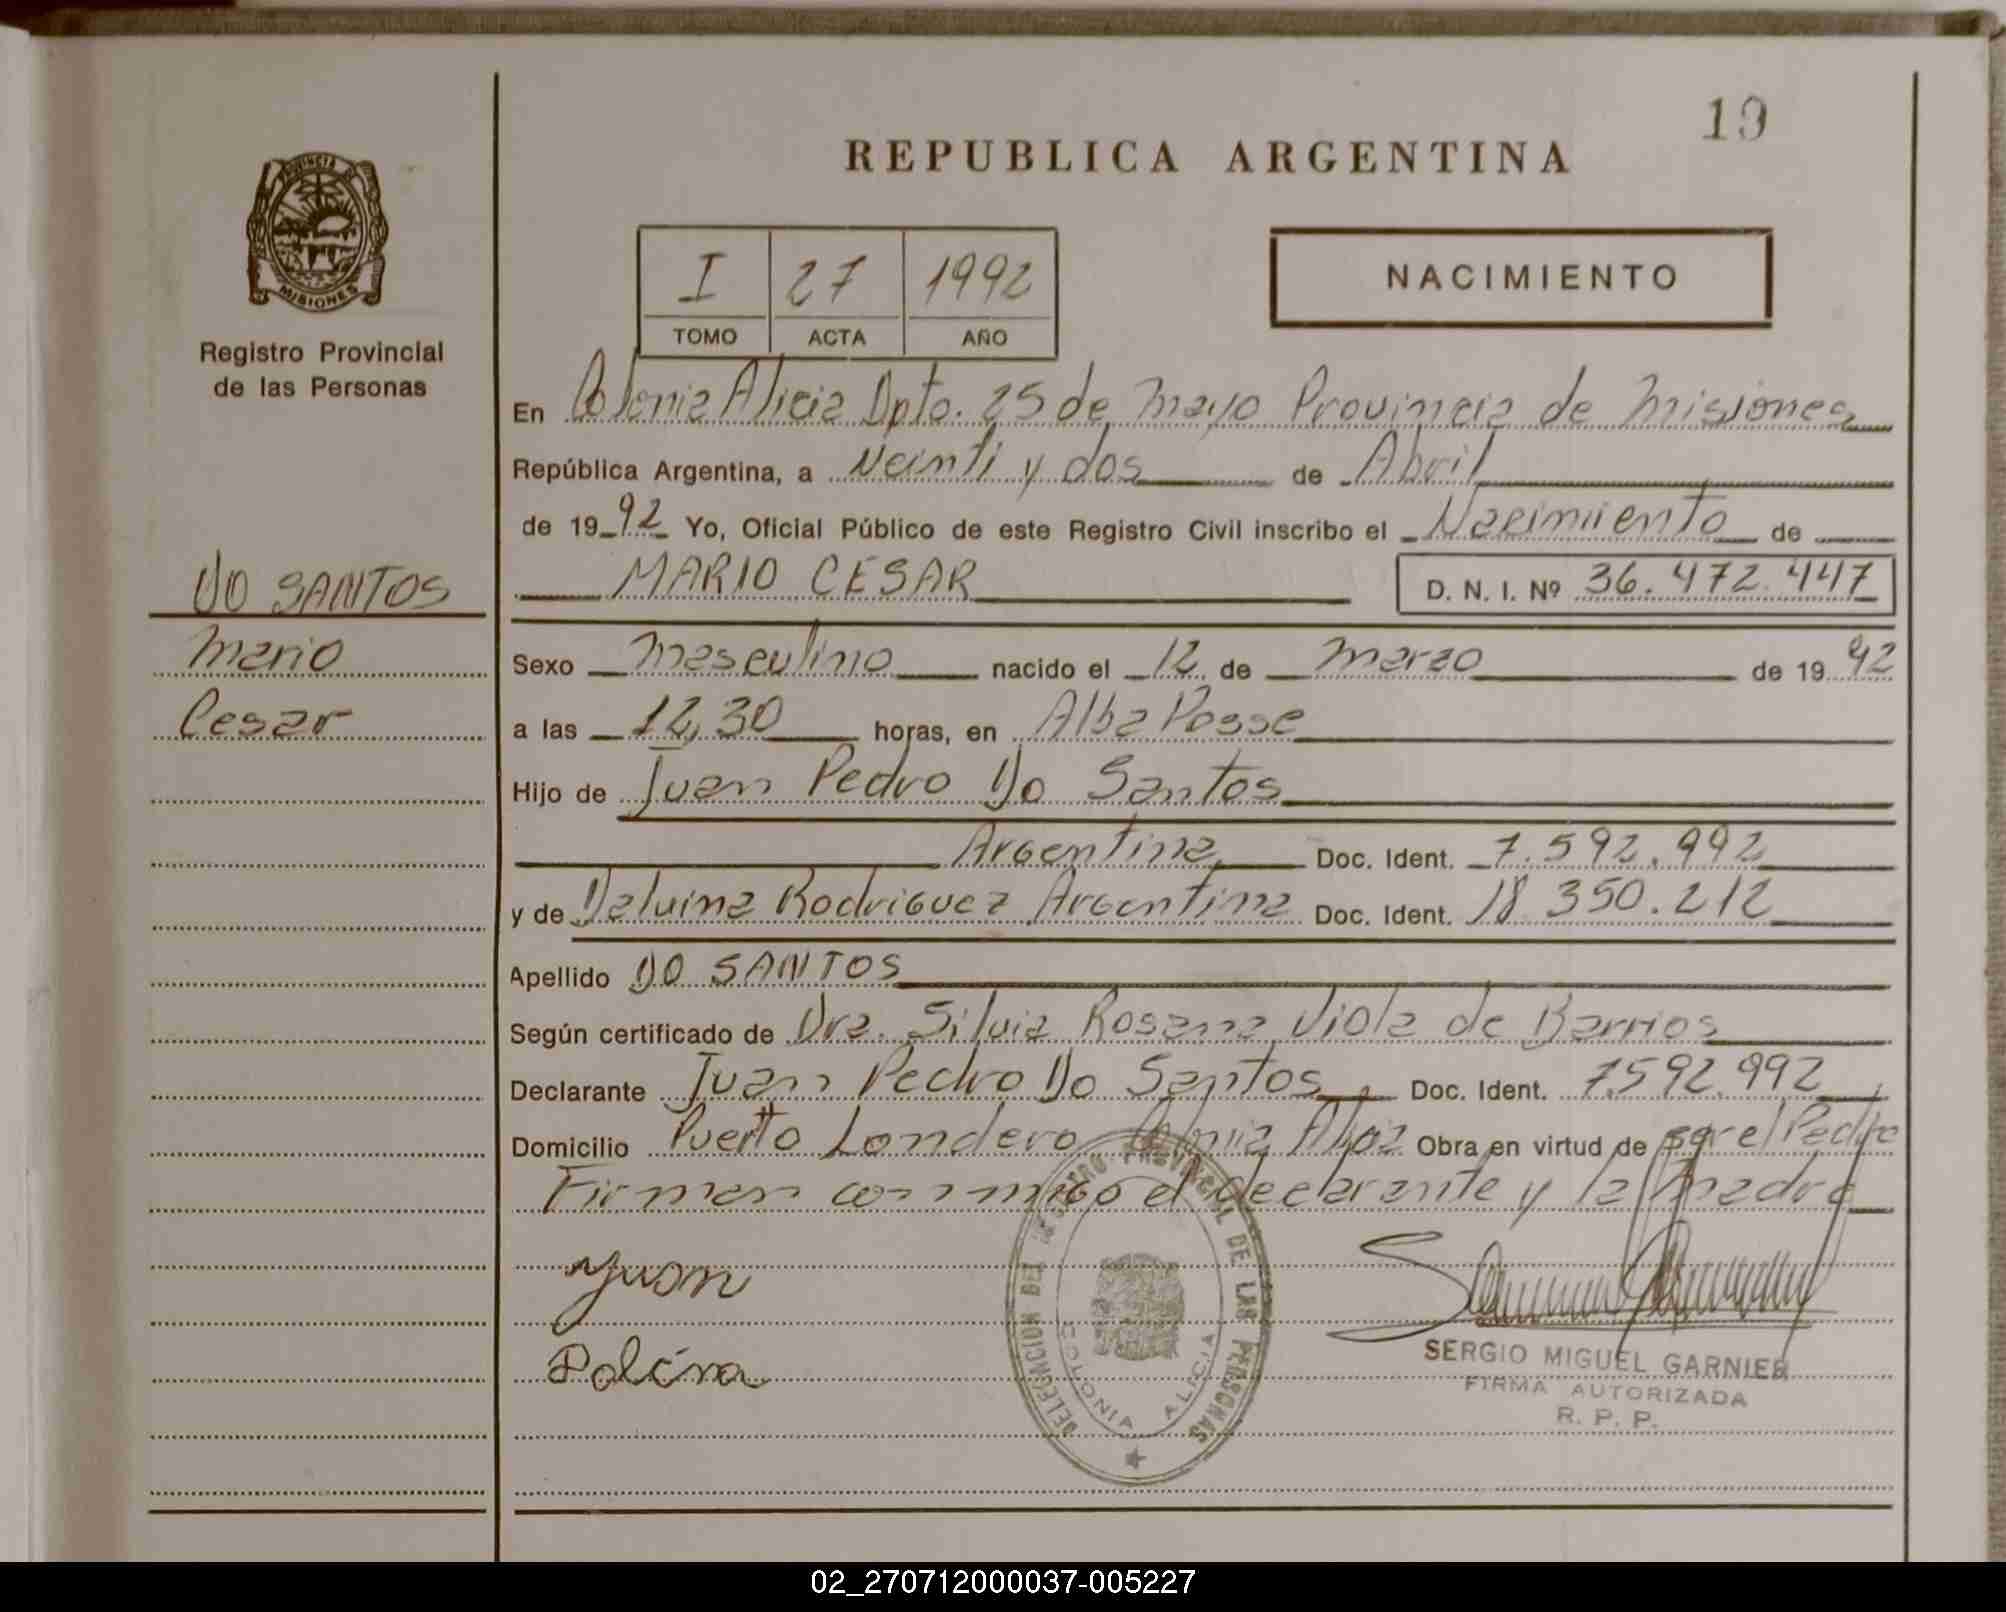 19
REPUBLICA ARGENTINA
PROVINCIA DE
MISIONES
Registro Provincial
de las Personas
I 27 1992
TOMO ACTA AÑO
NACIMIENTO
En Colonia Alicia Dpto. 25 de Mayo Provincia de Misiones
República Argentina, a Veinti y dos de Abril
de 1992 Yo, Oficial Público de este Registro Civil inscribo el Nacimiento de
MARIO CESAR D. N. I. Nº 36.472.447
DO SANTOS
Mario
Cesar
Sexo Masculino nacido el 12 de Marzo de 1992
a las 12,30 horas, en Alba Posse
Hijo de Juan Pedro Do Santos
Argentina Doc. Ident. 7.592.992
y de Dalvina Rodriguez Argentina Doc. Ident. 18.350.212
Apellido DO SANTOS
Según certificado de Dra. Silvia Rosana Viola de Barrios
Declarante Juan Pedro Do Santos Doc. Ident. 7.592.992
Domicilio Puerto Londero Colonia Alicia Obra en virtud de ser el Padre
Firman conmigo el declarante y la Madre
Juan
Dalvina
DELEGACION DEL REGISTRO PROVINCIAL DE LAS PERSONAS
COLONIA ALICIA
SERGIO MIGUEL GARNIER
FIRMA AUTORIZADA
R. P. P.
02_270712000037-005227